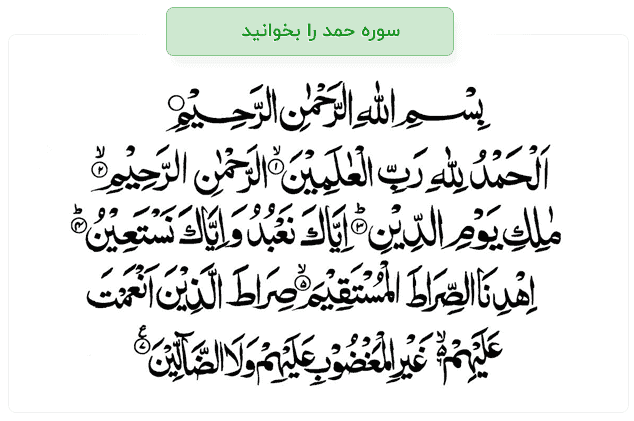 سوره حمد را بخوانید
بِسْمِ اللهِ الرَّحْمٰنِ الرَّحِيْمِ
اَلْحَمْدُ لِلّٰهِ رَبِّ الْعٰلَمِيْنَ ۙ﴿۱﴾ الرَّحْمٰنِ الرَّحِيْمِ ۙ﴿۲﴾
مٰلِكِ يَوْمِ الدِّيْنِ ؕ﴿۳﴾ اِيَّاكَ نَعْبُدُ وَاِيَّاكَ نَسْتَعِيْنُ ؕ﴿۴﴾
اِهْدِنَا الصِّرَاطَ الْمُسْتَقِيْمَ ۙ﴿۵﴾ صِرَاطَ الَّذِيْنَ اَنْعَمْتَ
عَلَيْهِمْ ۙ۬ غَيْرِ الْمَغْضُوْبِ عَلَيْهِمْ وَلَا الضَّآلِّيْنَ ﴿۷﴾ع